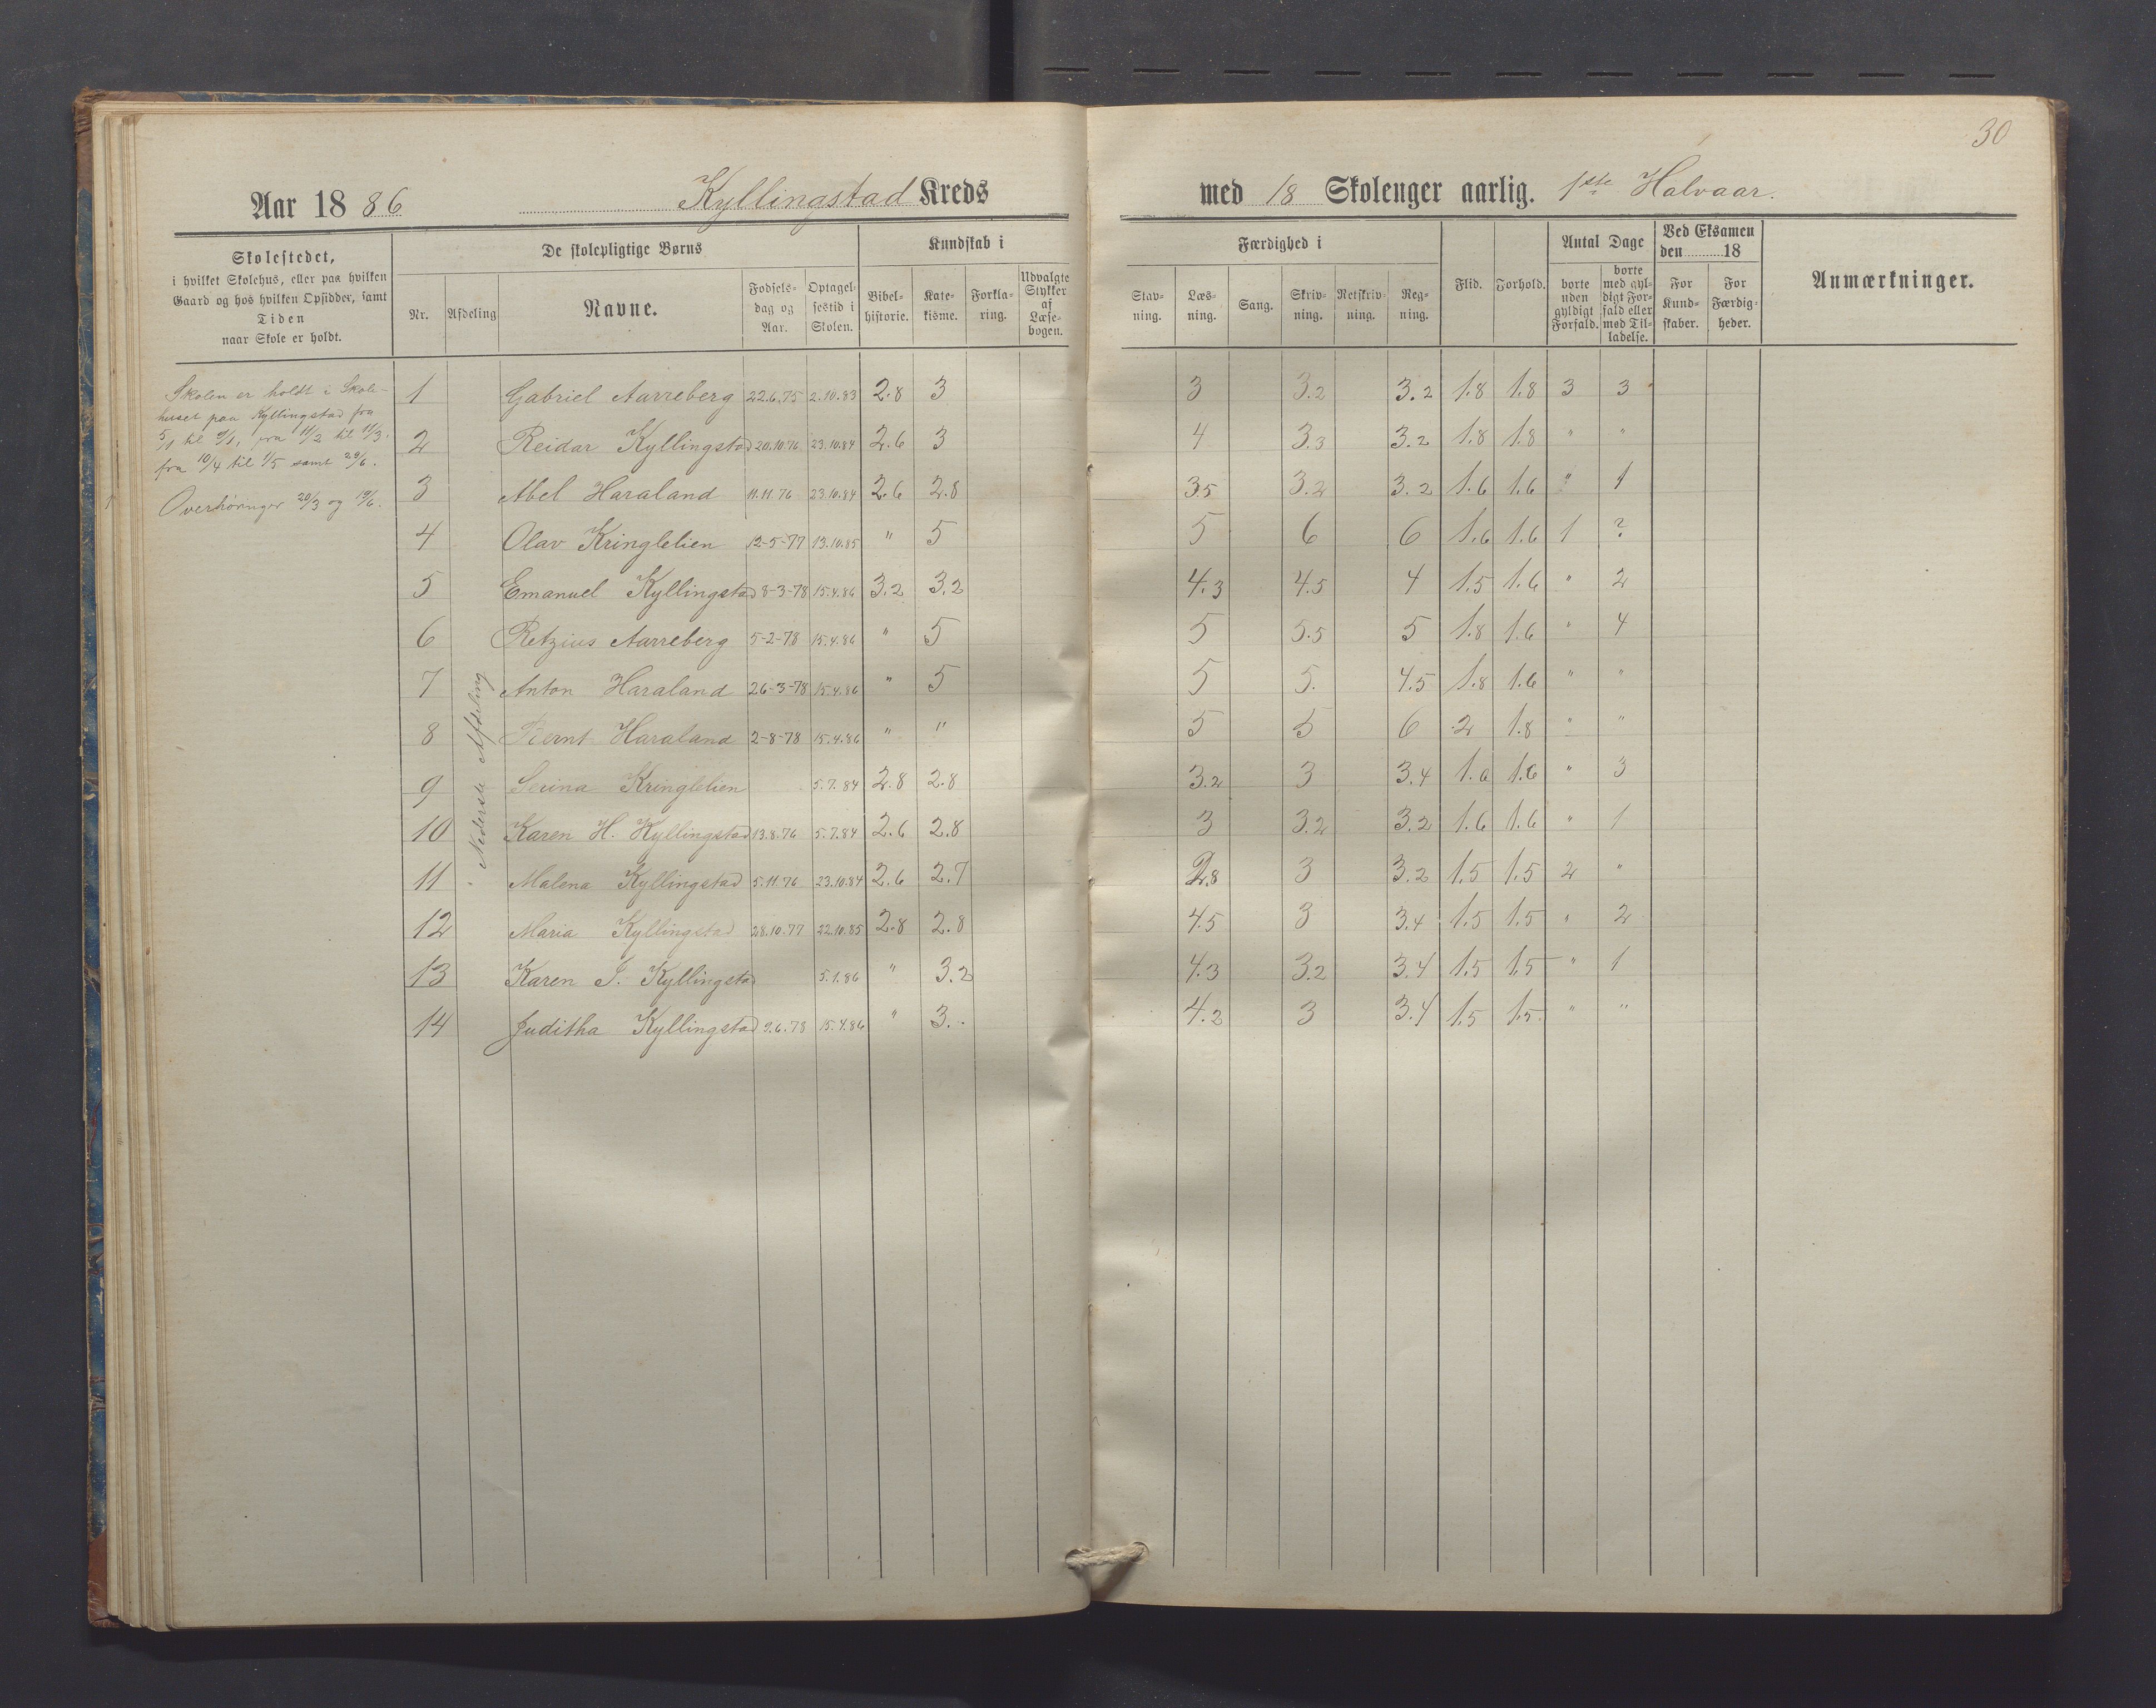 30
Aar 1886 Kyllingstad Kreds med 18 Skolenger aarlig. 1ste Halvaar.
Skolestedet,
i hvilket Skolehus, eller paa hvilken
Gaard og hos hvilken Opsidder, samt
Tiden
naar Skole er holdt.
De skolepligtige Børns
Nr. Afdeling Navne. Fødsels-dag og Aar. Optagel-sestid i Skolen.
Kundskab i
Bibel-historie. Kate-kisme. Forkla-ring. Udvalgte Stykker af Læse-bogen.
Færdighed i
Stav-ning. Læs-ning. Sang. Skriv-ning. Retskriv-ning. Reg-ning.
Flid. Forhold.
Antal Dage
borte uden gyldigt Forfald. borte med gyl-digt For-fald eller med Til-ladelse.
Ved Eksamen
den 18
For Kund-skaber. For Færdig-heder.
Anmærkninger.
Skolen er holdt i Skole-
huset paa Kyllingstad fra
5/1 til 9/1, fra 11/2 til 11/3.
fra 10/4 til 1/5 samt 29/6.
Overhøringer 20/3 og 19/6.
Nederste Afdeling
1 Gabriel Aarreberg 22.6.75 2.10.83 2.8 3 3 3.2 3.2 1.8 1.8 3 3
2 Reidar Kyllingstad 20.10.76 23.10.84 2.6 3 4 3.3 3.2 1.8 1.8 " "
3 Abel Haraland 11.11.76 23.10.84 2.6 2.8 3.5 3.2 3.2 1.6 1.6 " 1
4 Olav Kringlelien 12-5-77 13.10.85 " 5 5 6 6 1.6 1.6 1 ?
5 Emanuel Kyllingstad 8-3-78 15.4.86 3.2 3.2 4.3 4.5 4 1.5 1.6 " 2
6 Retzius Aarreberg 5-2-78 15.4.86 " 5 5 5.5 5 1.8 1.6 " 4
7 Anton Haraland 26-3-78 15.4.86 " 5 5 5. 4.5 1.8 1.6 " "
8 Haraland 2-8-78 15.4.86 " " 5 5 6 2 1.8 " "
9 Serina Kringlelien 5.7.84 2.8 2.8 3.2 3 3.4 1.6 1.6 " 3
10 Karen H. Kyllingstad 13.8.76 5.7.84 2.6 2.8 3 3.2 3.2 1.6 1.6 " 1
11 Malena Kyllingstad 5.11.76 23.10.84 2.6 2.7 2.8 3 3.2 1.5 1.5 2 "
12 Maria Kyllingstad 28.10.77 22.10.85 2.8 2.8 4.5 3 3.4 1.5 1.5 " 2
13 Karen I. Kyllingstad 5.1.86 " 3.2 4.3 3.2 3.4 1.5 1.5 " 1
14 Juditha Kyllingstad 9.6.78 15.4.86 " 3. 4.2 3 3.4 1.5 1.5 " "